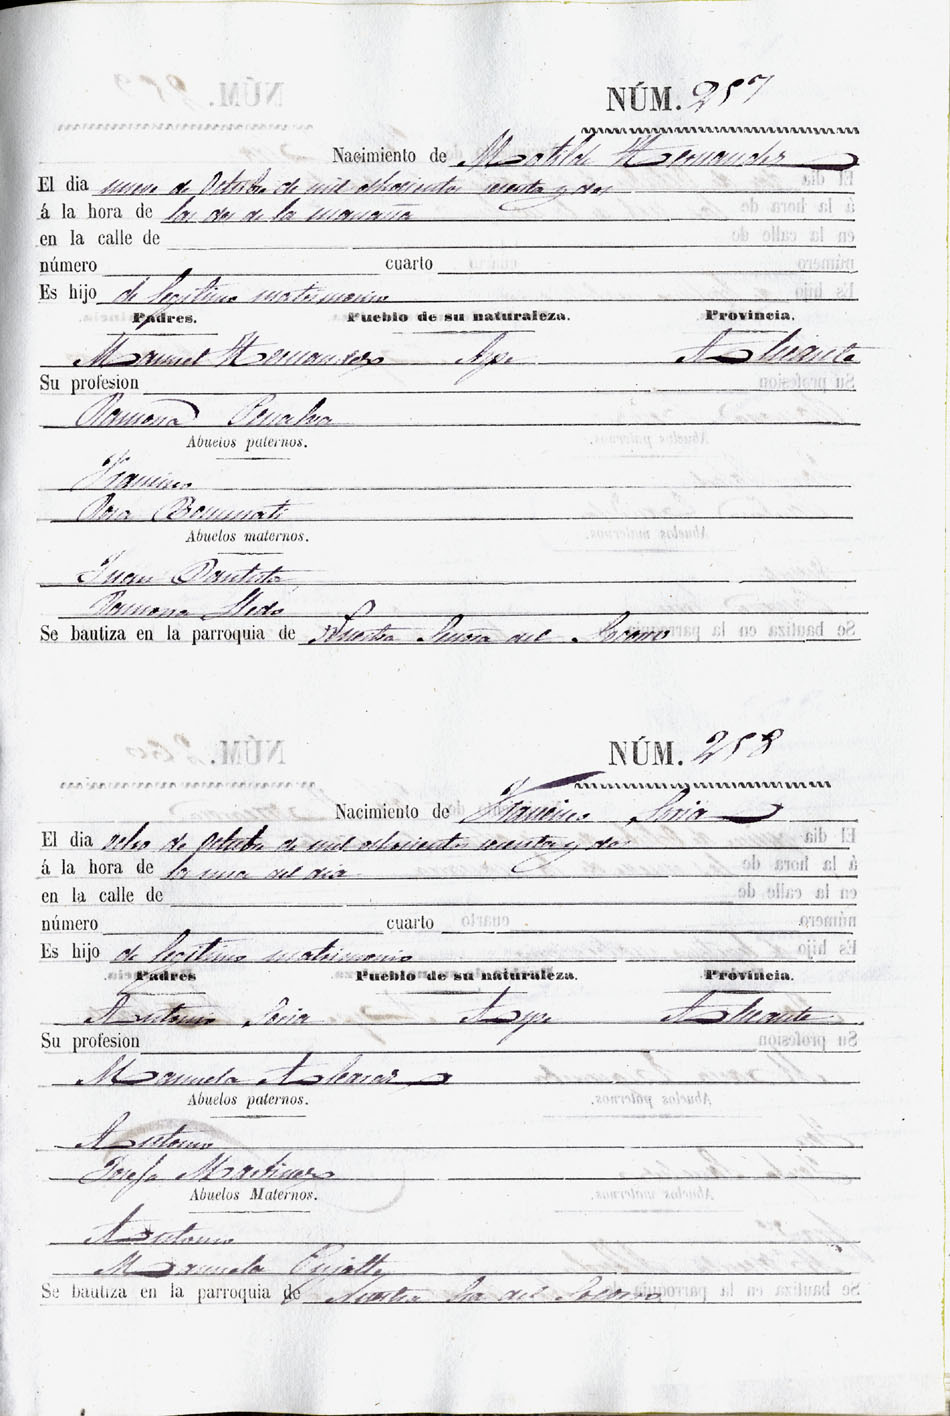 NÚM. 257
Nacimiento de Matilde Hernandez
El dia nueve de Octubre de mil ochocientos sesenta y dos
á la hora de las dos de la mañana
en la calle de
número cuarto
Es hijo de legitimo matrimonio
Padres. Pueblo de su naturaleza. Provincia.
Manuel Hernandez Aspe Alicante
Su profesion
Ramona Penalva
Abuelos paternos.
Francisco
Rosa Bonmati
Abuelos maternos.
Juan Bautista
Ramona Lledó
Se bautiza en la parroquia de Nuestra Señora del Socorro
NÚM. 258
Nacimiento de Francisco Soria
El dia ocho de Octubre de mil ochocientos sesenta y dos
á la hora de la una del dia
en la calle de
número cuarto
Es hijo de legitimo matrimonio
Padres Pueblo de su naturaleza. Provincia.
Antonio Soria Aspe Alicante
Su profesion
Manuela
Abuelos paternos.
Antonio
Josefa Martinez
Abuelos Maternos.
Antonio
Manuela Pujalte
Se bautiza en la parroquia de Nuestra Sra del Socorro